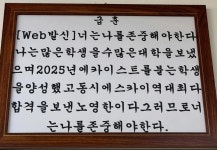 금 훈
[Web발신]너는나를존중해야한다.
나는많은학생을수많은대학을보냈
으며2025년에카이스트를붙는학생
을양성했고동시에스카이역대최다
합격을보낸노영한이다그러므로너
는나를존중해야한다.